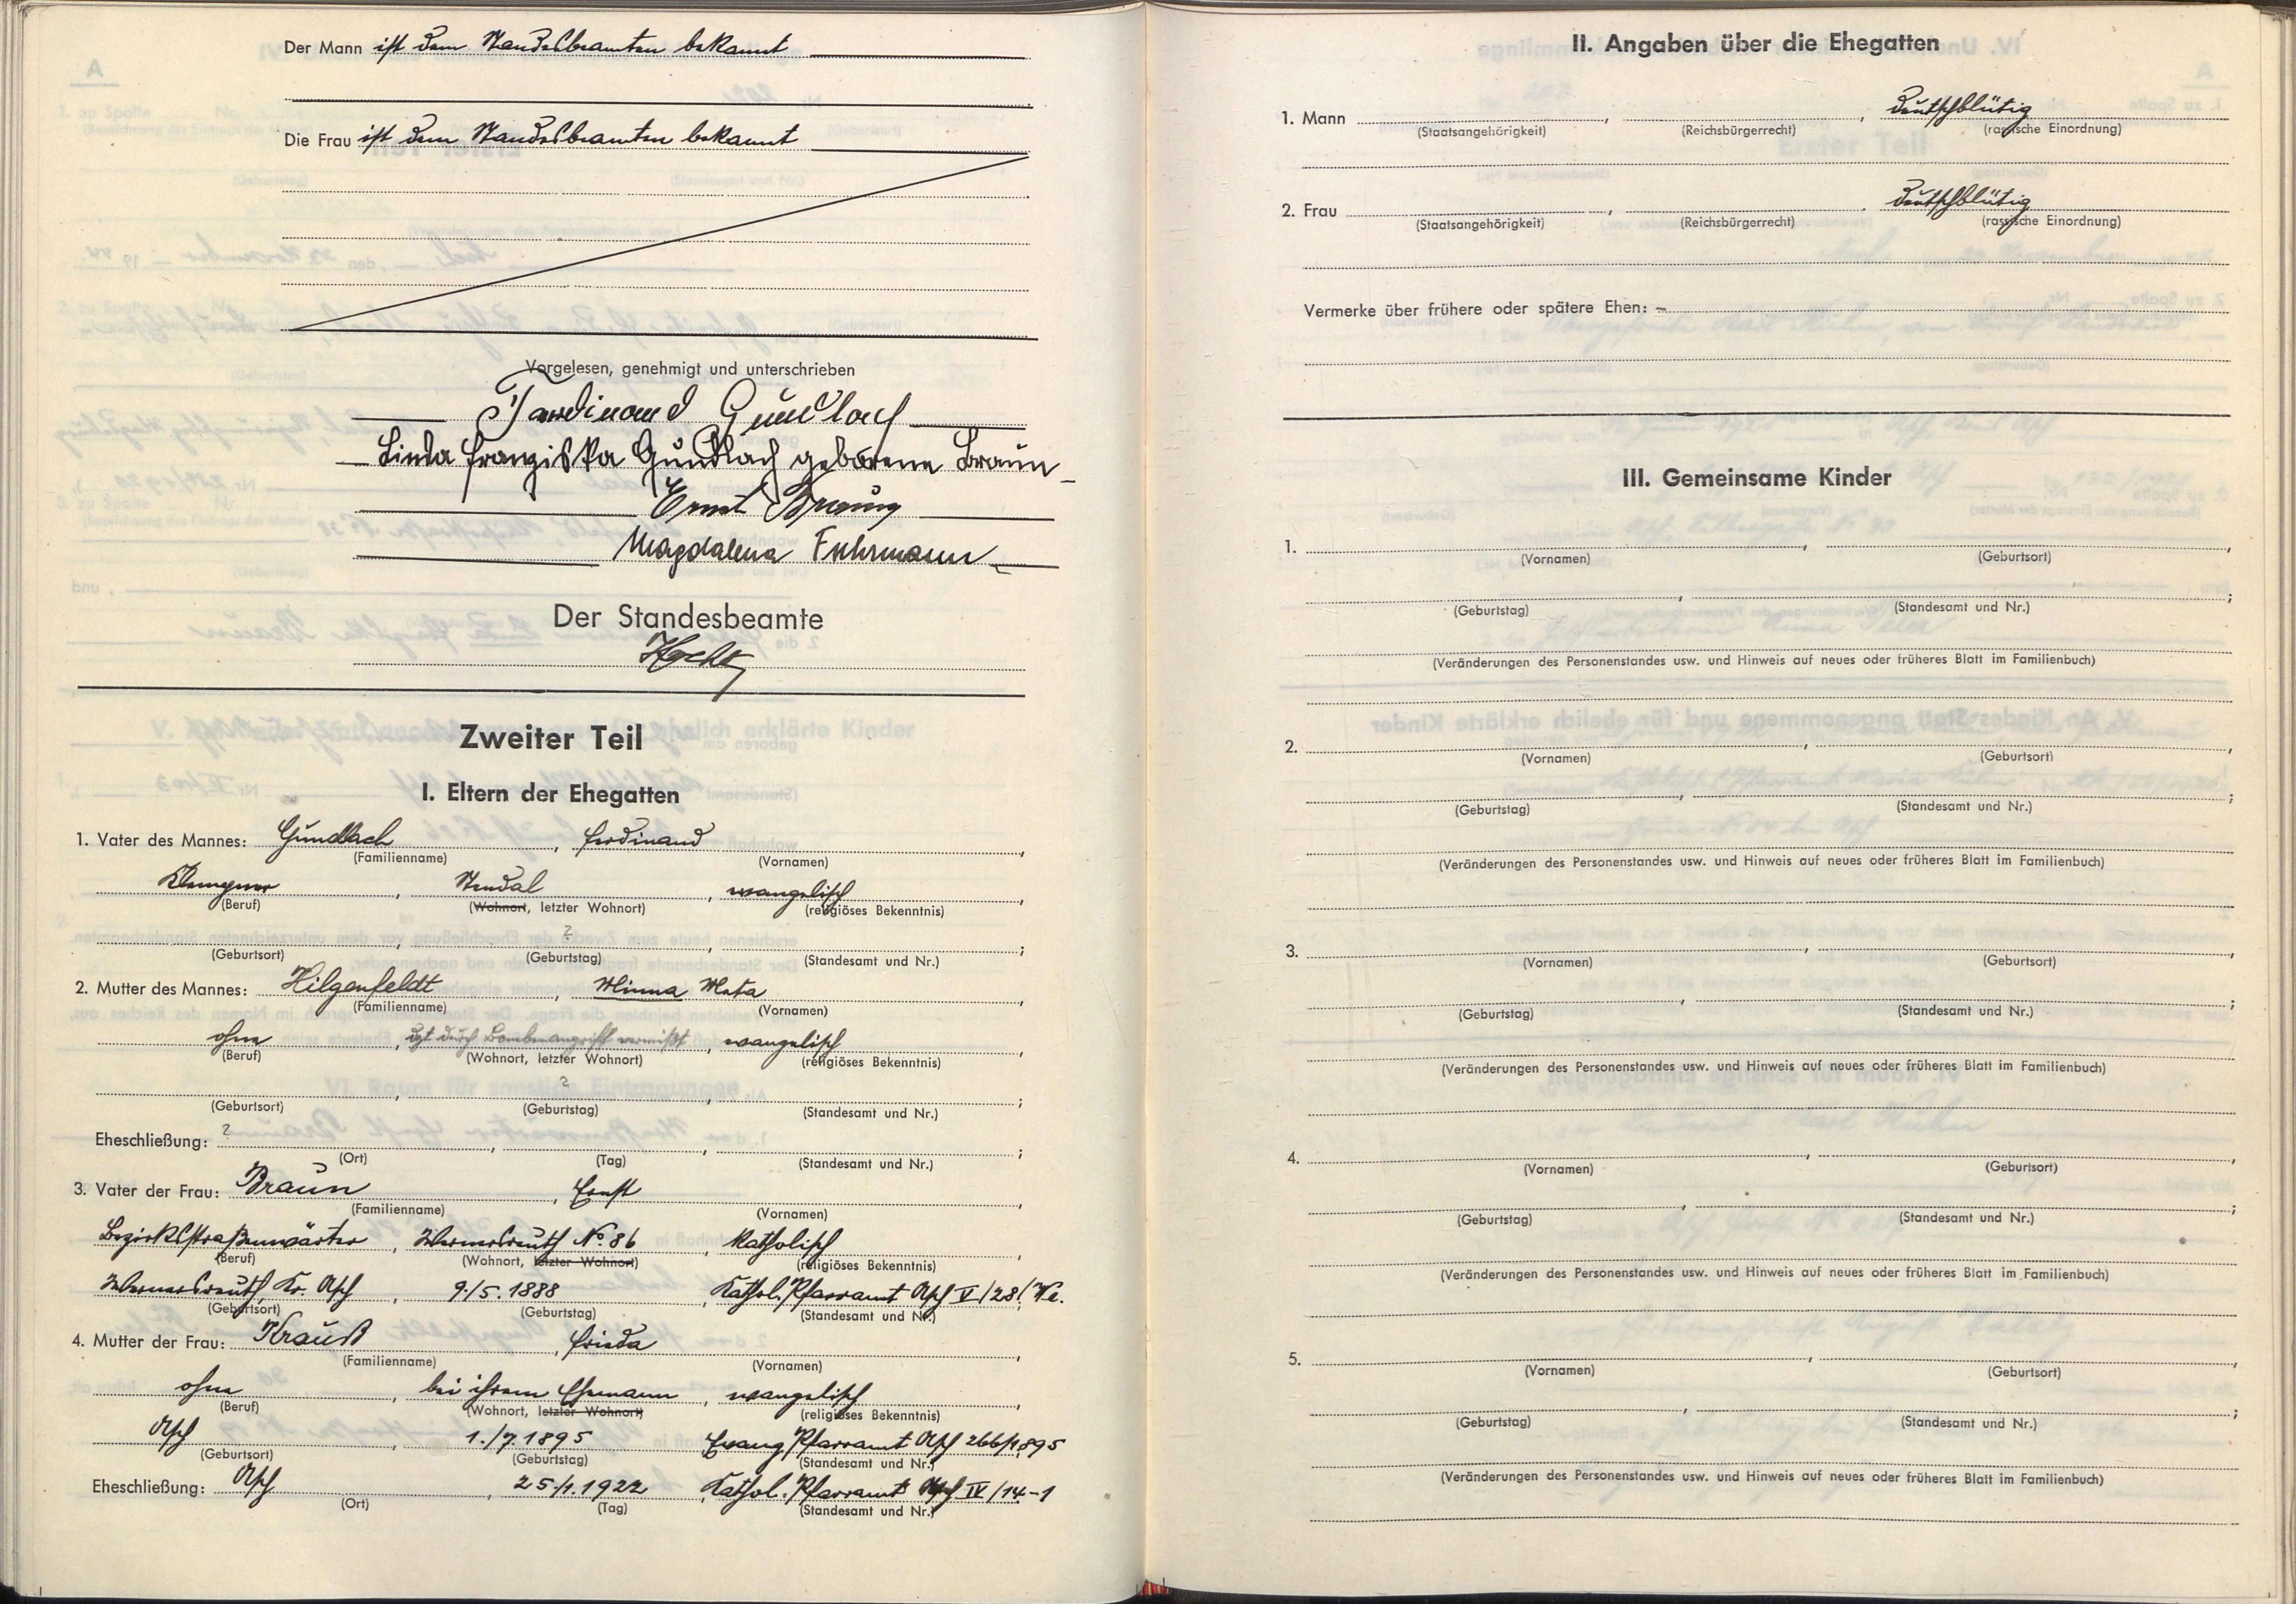 Der Mann ist dem Standesbeamten bekannt
Die Frau ist dem Standesbeamten bekannt
Vorgelesen, genehmigt und unterschrieben
Ferdinand Gundlach
Linda Franziska Gundlach geborene Braun
Ernst
Magdalena Fuhrmann
Der Standesbeamte
Zweiter Teil
I. Eltern der Ehegatten
1. Vater des Mannes: Gundlach, Ferdinand,
(Familienname) (Vornamen)
Klempner, Stendal, evangelisch,
(Beruf) (Wohnort, letzter Wohnort) (religiöses Bekenntnis)
, ?, ;
(Geburtsort) (Geburtstag) (Standesamt und Nr.)
2. Mutter des Mannes: Hilgenfeldt, Minna Meta,
(Familienname) (Vornamen)
ohne, durch Bombenangriff vermißt, evangelisch,
(Beruf) (Wohnort, letzter Wohnort) (religiöses Bekenntnis)
, ?, ;
(Geburtsort) (Geburtstag) (Standesamt und Nr.)
Eheschließung: ?, , ;
(Ort) (Tag) (Standesamt und Nr.)
3. Vater der Frau: Braun, Ernst,
(Familienname) (Vornamen)
Bezirksstraßenwärter, Wernersreuth No. 86, katholisch,
(Beruf) (Wohnort, letzter Wohnort) (religiöses Bekenntnis)
Wernersreuth, Kr. Asch, 9./5. 1888, Kathol. Pfarramt Asch V/28/We.
(Geburtsort) (Geburtstag) (Standesamt und Nr.)
4. Mutter der Frau: Krauß, Frieda,
(Familienname) (Vornamen)
ohne, bei ihrem Ehemann, evangelisch,
(Beruf) (Wohnort, letzter Wohnort) (religiöses Bekenntnis)
Asch, 1./7. 1895, Evang. Pfarramt Asch 266/1895
(Geburtsort) (Geburtstag) (Standesamt und Nr.)
Eheschließung: Asch, 25./1. 1922, Kathol. Pfarramt Asch IV/14-1
(Ort) (Tag) (Standesamt und Nr.)
II. Angaben über die Ehegatten
1. Mann , , deutschblütig
(Staatsangehörigkeit) (Reichsbürgerrecht) (rassische Einordnung)
2. Frau , , deutschblütig
(Staatsangehörigkeit) (Reichsbürgerrecht) (rassische Einordnung)
Vermerke über frühere oder spätere Ehen: –
III. Gemeinsame Kinder
1. , ,
(Vornamen) (Geburtsort)
, ;
(Geburtstag) (Standesamt und Nr.)
(Veränderungen des Personenstandes usw. und Hinweis auf neues oder früheres Blatt im Familienbuch)
2. , ,
(Vornamen) (Geburtsort)
, ;
(Geburtstag) (Standesamt und Nr.)
(Veränderungen des Personenstandes usw. und Hinweis auf neues oder früheres Blatt im Familienbuch)
3. , ,
(Vornamen) (Geburtsort)
, ;
(Geburtstag) (Standesamt und Nr.)
(Veränderungen des Personenstandes usw. und Hinweis auf neues oder früheres Blatt im Familienbuch)
4. , ,
(Vornamen) (Geburtsort)
, ;
(Geburtstag) (Standesamt und Nr.)
(Veränderungen des Personenstandes usw. und Hinweis auf neues oder früheres Blatt im Familienbuch)
5. , ,
(Vornamen) (Geburtsort)
, ;
(Geburtstag) (Standesamt und Nr.)
(Veränderungen des Personenstandes usw. und Hinweis auf neues oder früheres Blatt im Familienbuch)